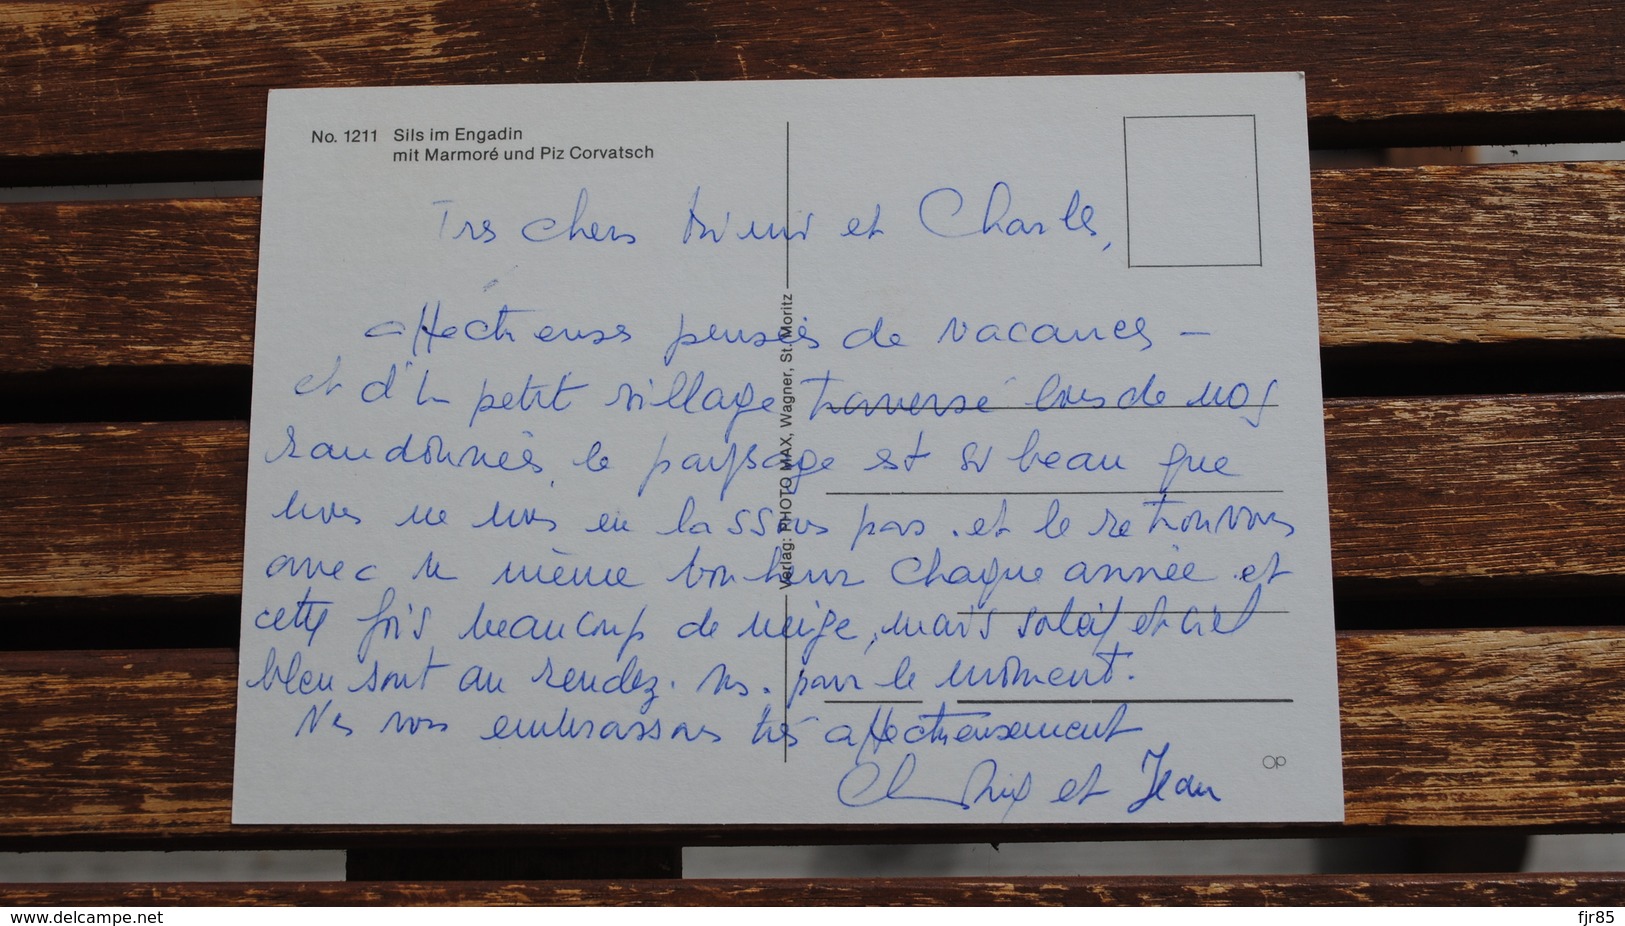 No. 1211 Sils im Engadin
mit Marmoré und Piz Corvatsch
Très chers Mimi et Charles,
affectueuses pensées de vacances –
et d'un petit village traversé lors de nos
randonnées, le paysage est si beau que
nous ne nous en lassons pas. et le retrouvons
avec le même bonheur chaque année. et
cette fois beaucoup de neige, mais soleil et ciel
bleu sont au rendez. vs. pour le moment.
Ns vous embrassons très affectueusement
et Jean
Verlag: PHOTO MAX, Wagner, St. Moritz
OP
www.delcampe.net
fjr85